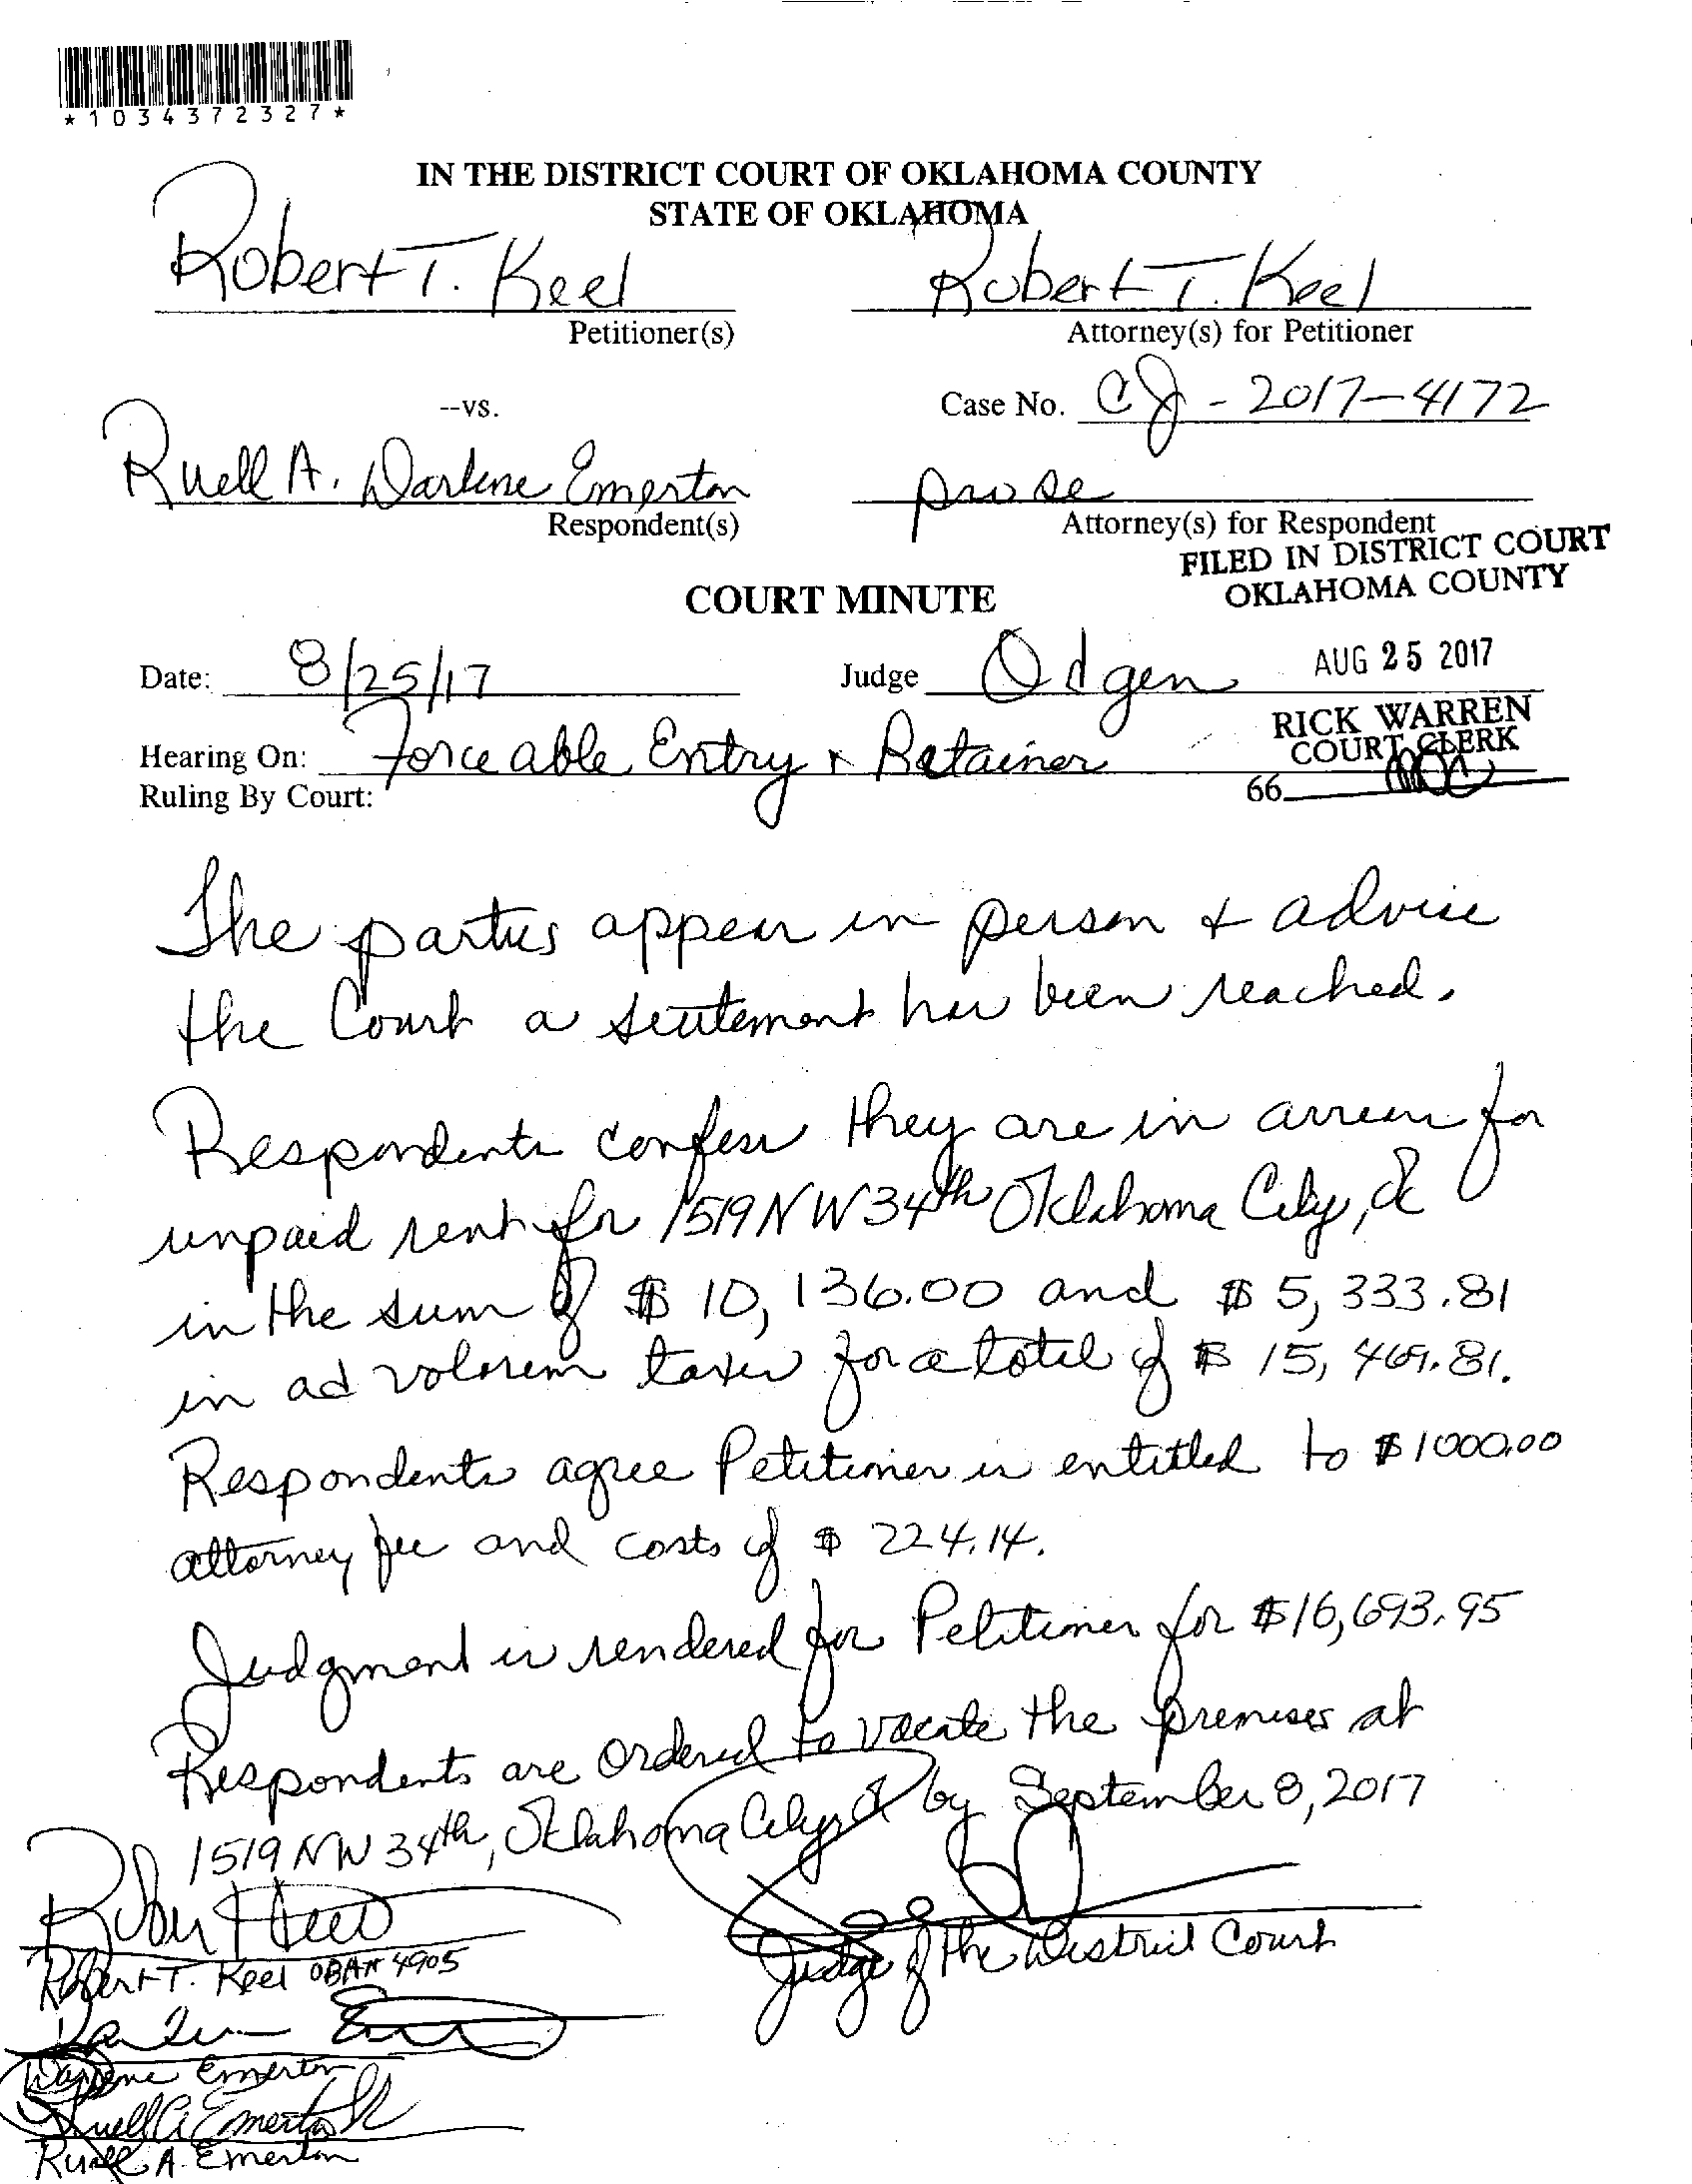 *1034372327*
IN THE DISTRICT COURT OF OKLAHOMA COUNTY
STATE OF OKLAHOMA
Robert T. Keel Robert T. Keel
Petitioner(s) Attorney(s) for Petitioner
--vs. Case No. CJ-2017-4172
Ruell A. Darlene Emerton pro se
Respondent(s) Attorney(s) for Respondent
FILED IN DISTRICT COURT
OKLAHOMA COUNTY
COURT MINUTE
Date: 8/25/17 Judge Odgen AUG 25 2017
RICK WARREN
COURT CLERK
Hearing On: Forceable Entry & Retainer
Ruling By Court: 66
The parties appear in person & advise
the Court a settlement has been reached.
Respondents confess they are in arrears for
unpaid rent for 1519 NW 34th Oklahoma City, Ok
in the sum of $10,136.00 and $5,333.81
in ad volorem taxes for a total of $15,469.81.
Respondents agree Petitioner is entitled to $1000.00
attorney fee and costs of $224.14.
Judgment is rendered for Petitioner for $16,693.95
Respondents are ordered to vacate the premises at
1519 NW 34th, Oklahoma City, Ok by September 8, 2017
Robert Keel
Robert T. Keel OBA# 4905
Judge of the District Court
Darlene Emerton
Ruell A Emerton
Ruell A. Emerton